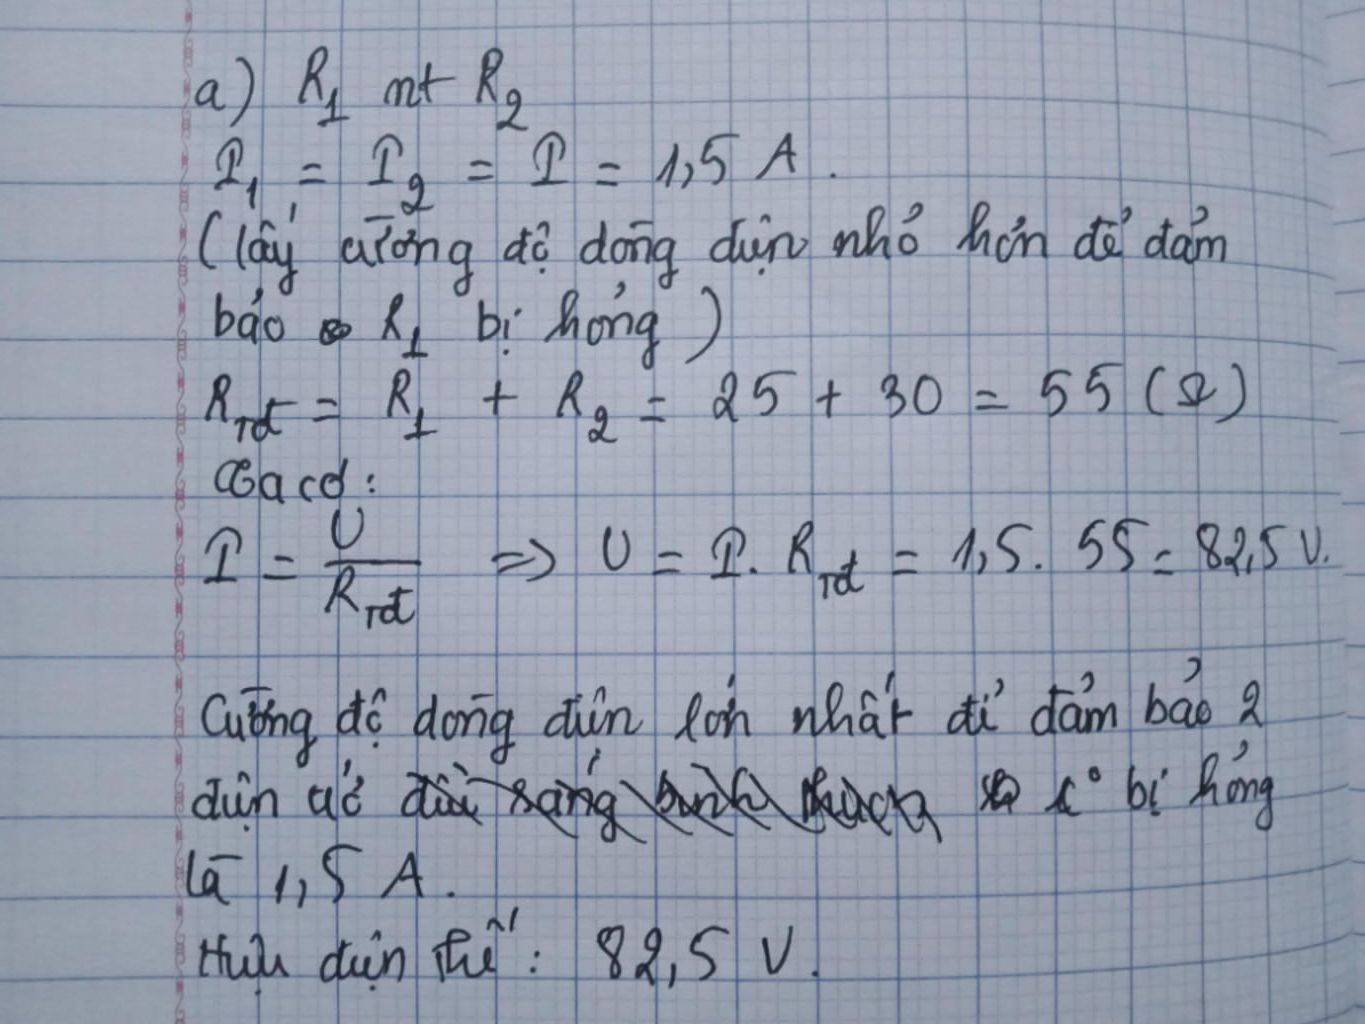 a) R₁ nt R₂
I₁ = I₂ = I = 1,5 A.
(lấy cường độ dòng điện nhỏ hơn để đảm
bảo R₁ bị hỏng)
Rtđ = R₁ + R₂ = 25 + 30 = 55 (Ω)
Ta có:
I = U/Rtđ => U = I. Rtđ = 1,5. 55 = 82,5 V.
Cường độ dòng điện lớn nhất để đảm bảo 2
điện trở bị hỏng
là 1,5 A.
Hiệu điện thế: 82,5 V.